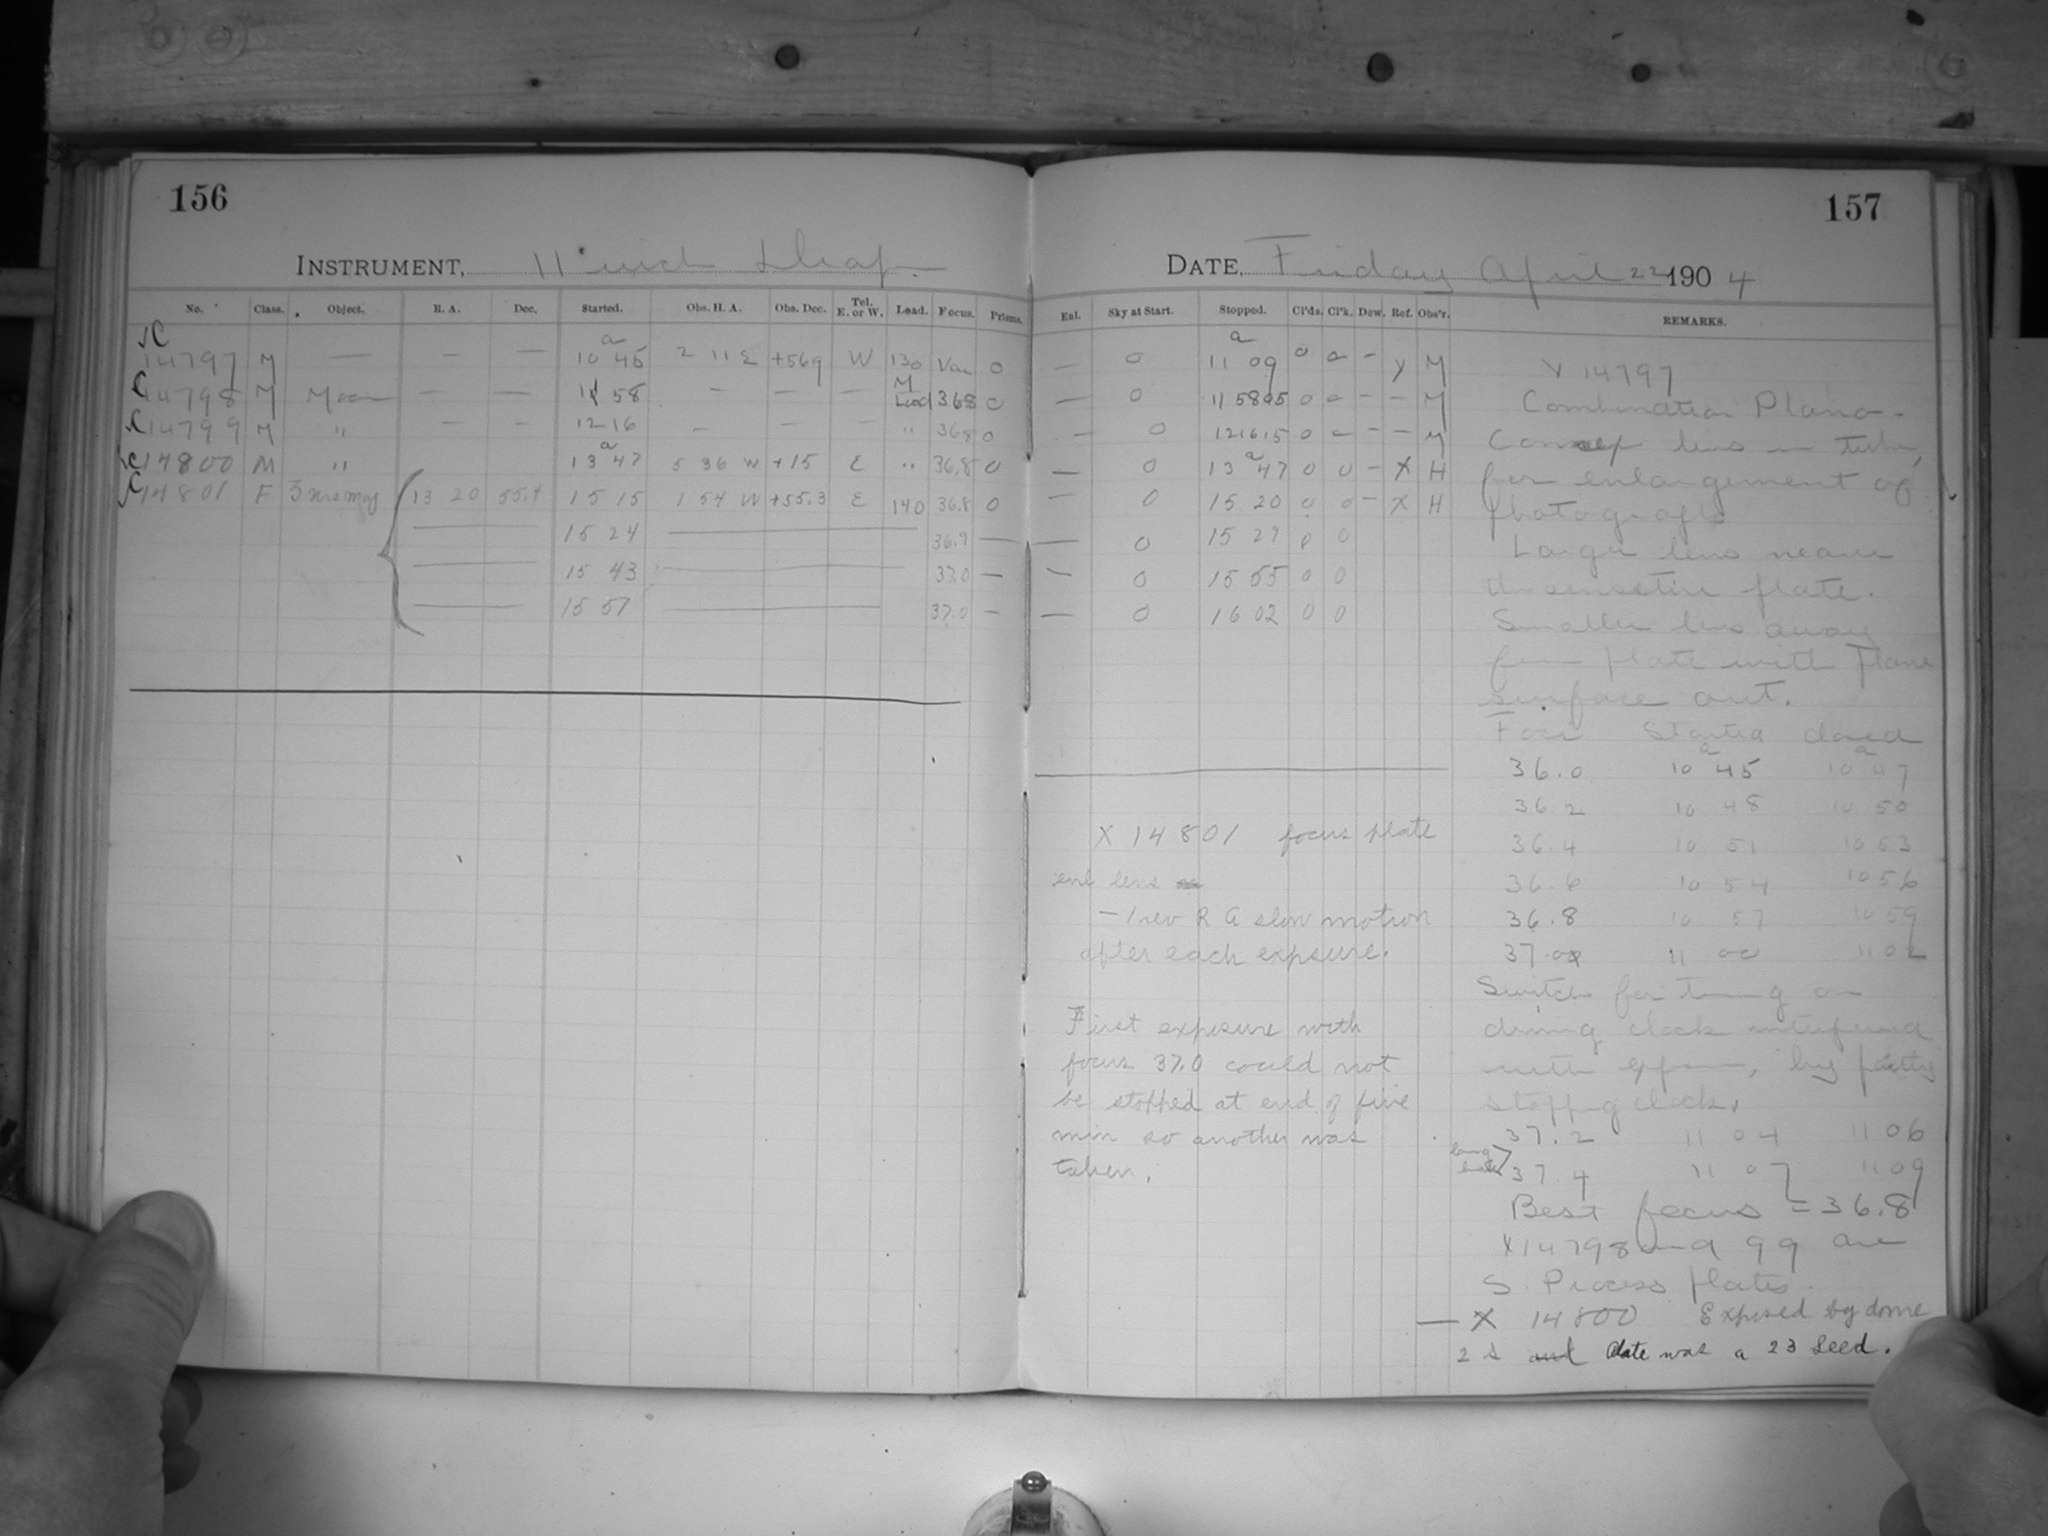 156
INSTRUMENT, 11 inch Drap.
No. Class. Object. R. A. Dec. Started. Obs. H. A. Obs. Dec. Tel. E. or W. Load. Focus. Prisms.
C
14797 M — — — 10 a 45 2 11 E +569 W 130 Var 0
C 14798 M Moon — — 11 58 — — — M Load 36.8 0
C 14799 M " — — 12 16 — — — " 36.8 0
C 14800 M " 13 a 47 5 36 W +15 E " 36.8 0
C 14801 F 3 urs maj 13 20 55.4 15 15 1 54 W +55.3 E 140 36.8 0
15 24 36.9 —
15 43 37.0 —
15 57 37.0 —
157
DATE, Friday April 22 1904
Ext. Sky at Start. Stopped. Cl'ds. Cl'k. Dew. Ref. Obs'r. REMARKS.
— 0 11 a 09 0 0 — y M
— 0 11 58 05 0 0 — — M
— 0 12 16 15 0 — — — M
— 0 13 a 47 0 0 — X H
— 0 15 20 0 0 — X H
— 0 15 29 0 0
— 0 15 55 0 0
— 0 16 02 0 0
X 14801 focus plate
enl lens
— 1 rev R A slow motion
after each exposure.
First exposure with
focus 37.0 could not
be stopped at end of five
min so another was
taken.
Y 14797
Combination Plano-
Convex lens in tube,
for enlargement of
photographs
Larger lens nearer
the sensetive plate.
Smaller lens away
from plate with plane
surface out.
Foci Started closed
36.0 10 a 45 10 a 47
36.2 10 48 10 50
36.4 10 51 10 53
36.6 10 54 10 56
36.8 10 57 10 59
37.0 11 00 11 02
Switch for turning on
driving clock interfered
with expos, by partly
stopping clock.
37.2 11 04 11 06
37.4 11 07 11 09
Best focus = 36.8
X 14798 and 99 are
S. Process plates.
— X 14800 Exposed by dome
2 s plate was a 23 Seed.